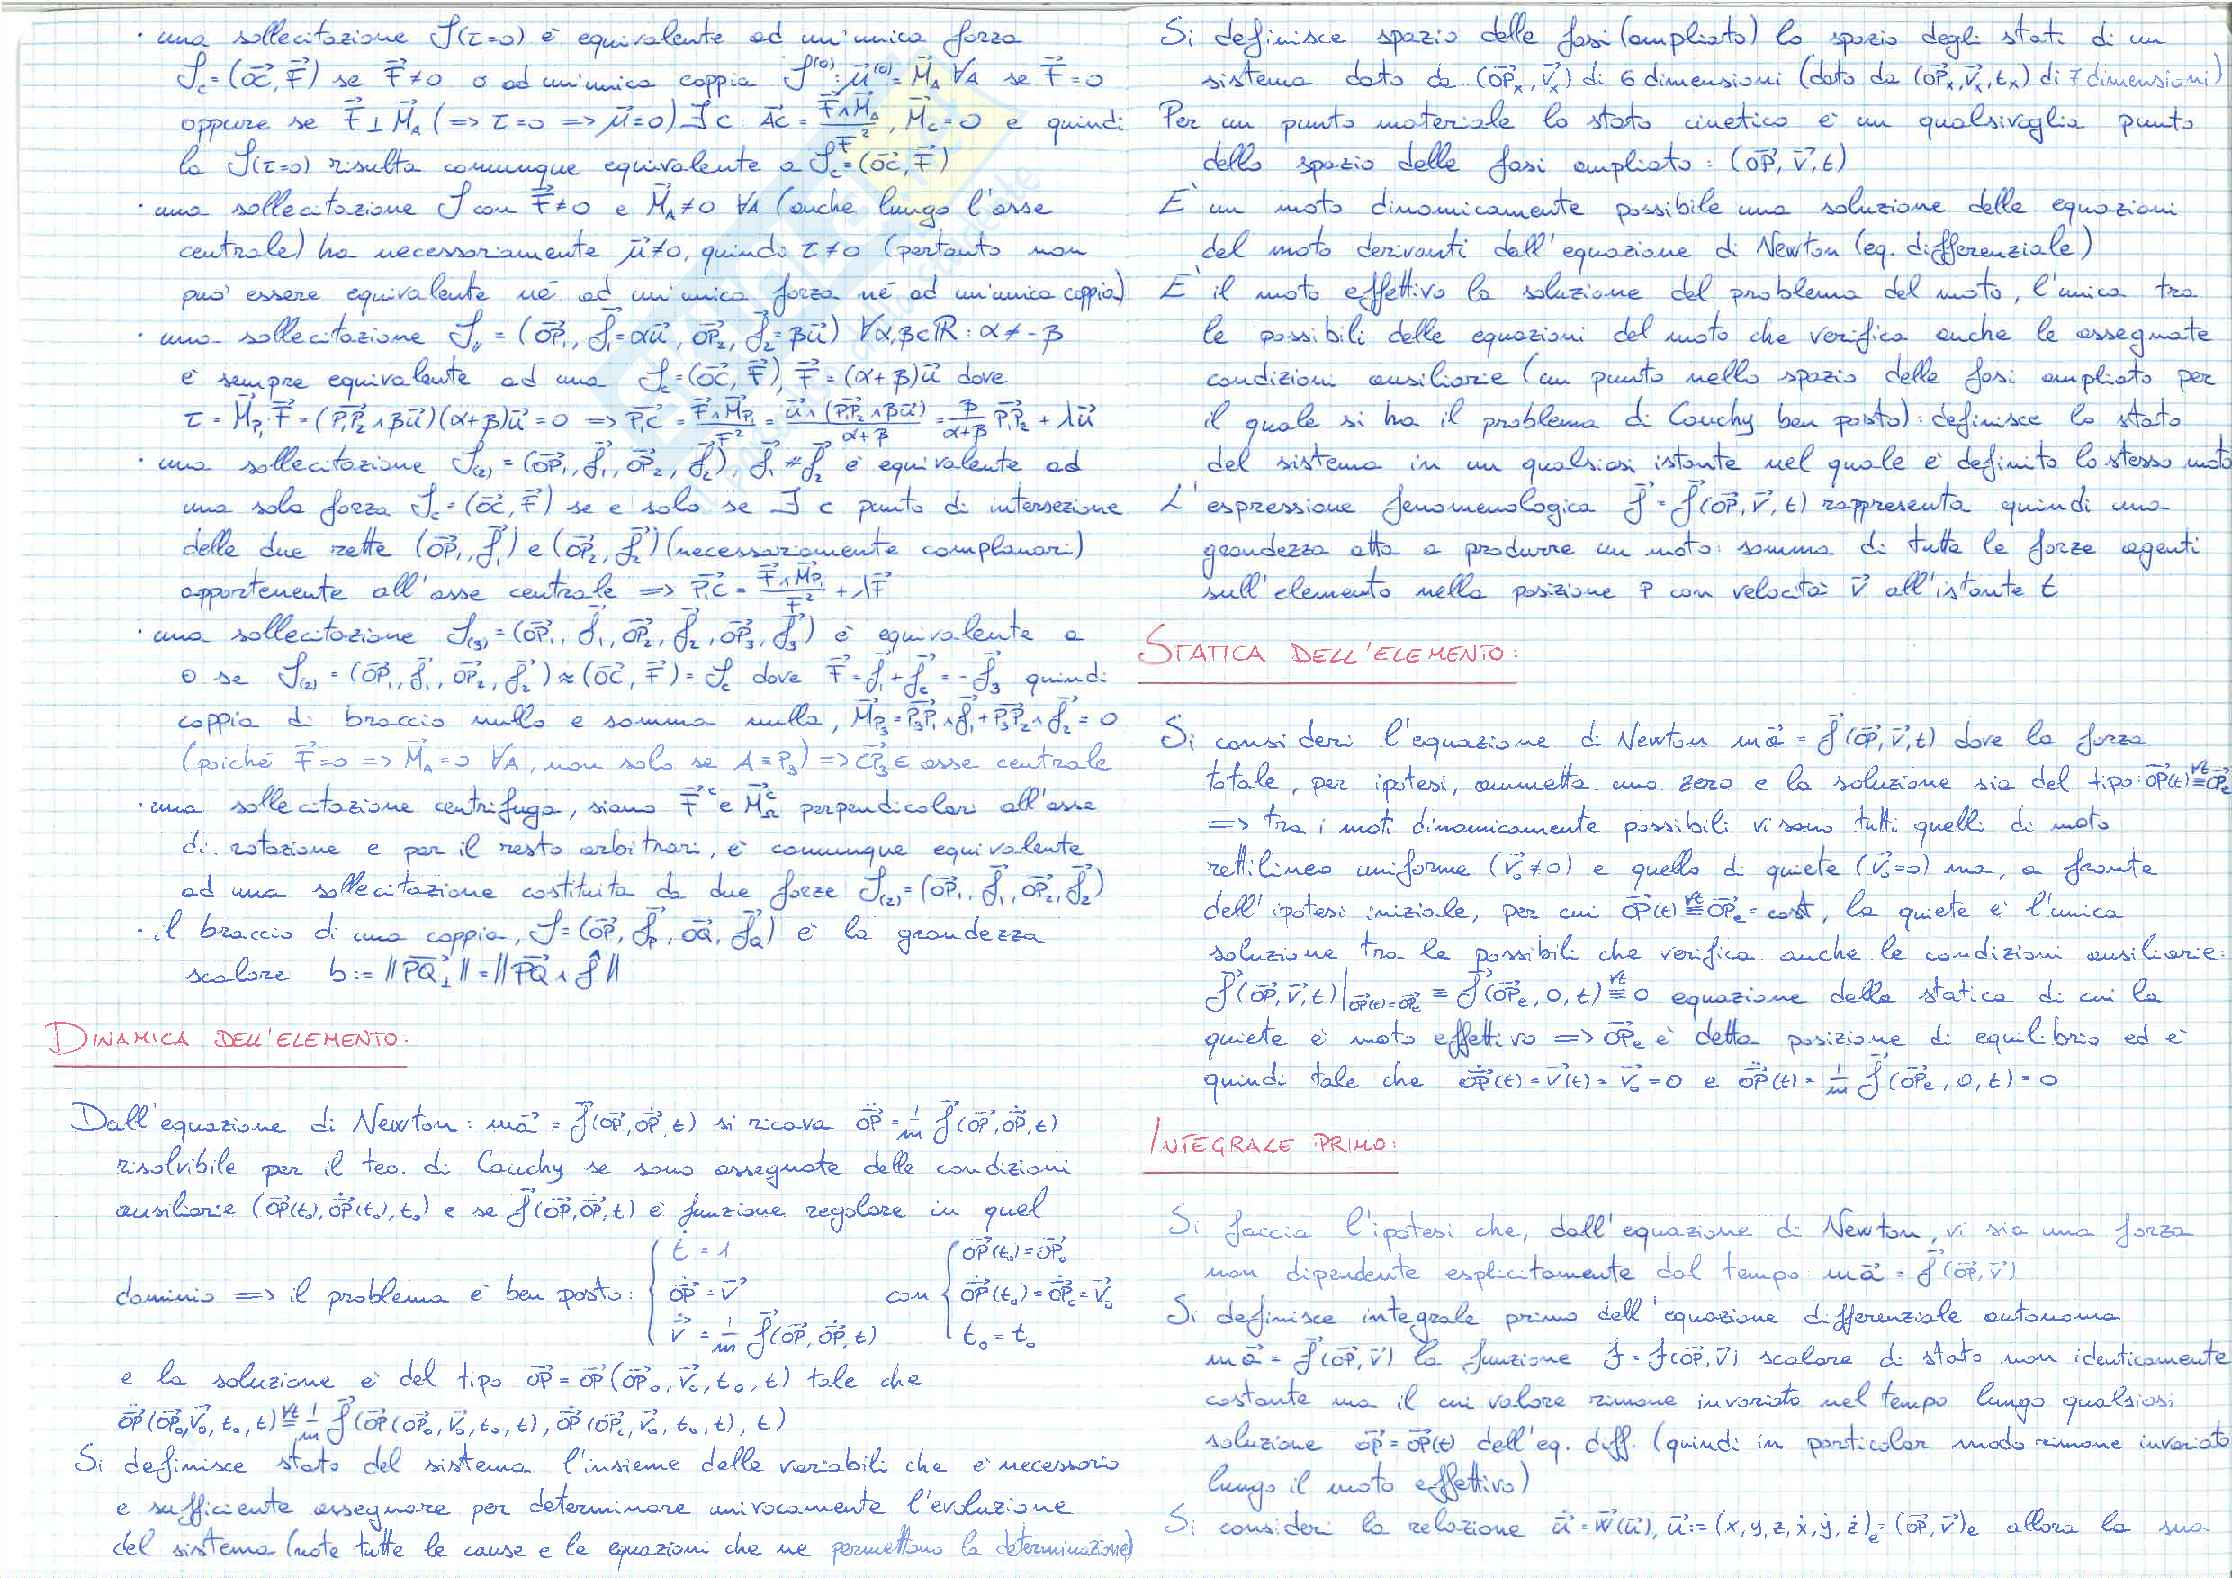 · una sollecitazione 𝒮(τ=0) è equivalente ad un'unica forza
𝒮c = (OC⃗, F⃗) se F⃗≠0 o ad un'unica coppia 𝒮⁽⁰⁾: μ⃗⁽⁰⁾ = M⃗_A ∀A se F⃗=0
oppure se F⃗⊥M⃗_A (=> τ=0 => μ⃗=0) ∃ C: AC⃗ = F⃗∧M⃗_A/F², M⃗_C=0 e quindi
la 𝒮(τ=0) risulta comunque equivalente a 𝒮c = (OC⃗, F⃗)
· una sollecitazione 𝒮 con F⃗≠0 e M⃗_A≠0 ∀A (anche lungo l'asse
centrale) ha necessariamente μ⃗≠0, quindi τ≠0 (pertanto non
può essere equivalente né ad un'unica forza né ad un'unica coppia)
· una sollecitazione 𝒮_∥ = (OP⃗₁, f⃗₁=αu⃗, OP⃗₂, f⃗₂=βu⃗) ∀α,β∈ℝ: α≠-β
è sempre equivalente ad una 𝒮c=(OC⃗, F⃗), F⃗=(α+β)u⃗ dove
τ = M⃗_P₁·F⃗ = (P₁P₂⃗∧βu⃗)(α+β)u⃗ = 0 => P₁C⃗ = F⃗∧M⃗_P₁/F² = u⃗∧(P₁P₂⃗∧βu⃗)/(α+β) = β/(α+β) P₁P₂⃗ + λu⃗
· una sollecitazione 𝒮₍₂₎ = (OP⃗₁, f⃗₁, OP⃗₂, f⃗₂), f⃗₁ ∦ f⃗₂ è equivalente ad
una sola forza 𝒮c = (OC⃗, F⃗) se e solo se ∃ C punto di intersezione
delle due rette (OP⃗₁, f⃗₁) e (OP⃗₂, f⃗₂) (necessariamente complanari)
appartenente all'asse centrale => P₁C⃗ = F⃗∧M⃗_P₁/F² + λF⃗
· una sollecitazione 𝒮₍₃₎ = (OP⃗₁, f⃗₁, OP⃗₂, f⃗₂, OP⃗₃, f⃗₃) è equivalente a
0 se 𝒮₍₂₎ = (OP⃗₁, f⃗₁, OP⃗₂, f⃗₂) ≈ (OC⃗, F⃗) = 𝒮c dove F⃗ = f⃗₁+f⃗₂ = -f⃗₃ quindi
coppia di braccio nullo e somma nulla, M⃗_P₃ = P₃P₁⃗∧f⃗₁ + P₃P₂⃗∧f⃗₂ = 0
(poiché F⃗=0 => M⃗_A=0 ∀A, non solo se A≡P₃) => CP₃⃗ ∈ asse centrale
· una sollecitazione centrifuga, siano F⃗ᶜ e M⃗ᶜ_Ω perpendicolari all'asse
di rotazione e per il resto arbitrari, è comunque equivalente
ad una sollecitazione costituita da due forze 𝒮₍₂₎ = (OP⃗₁, f⃗₁, OP⃗₂, f⃗₂)
· il braccio di una coppia, 𝒮=(OP⃗, f⃗_P, OQ⃗, f⃗_Q) è la grandezza
scalare b:= ‖PQ⃗_⊥‖ = ‖PQ⃗ ∧ f̂‖
DINAMICA DELL'ELEMENTO:
Dall'equazione di Newton: ma⃗ = f⃗(OP⃗, OṖ⃗, t) si ricava OP̈⃗ = 1/m f⃗(OP⃗, OṖ⃗, t)
risolvibile per il teo. di Cauchy se sono assegnate delle condizioni
ausiliarie (OP⃗(t₀), OṖ⃗(t₀), t₀) e se f⃗(OP⃗, OṖ⃗, t) è funzione regolare in quel
dominio => il problema è ben posto: { ṫ = 1 con { OP⃗(t₀) = OP⃗₀
OṖ⃗ = v⃗ OṖ⃗(t₀) = OṖ⃗₀ = v⃗₀
v̇⃗ = 1/m f⃗(OP⃗, OṖ⃗, t) t₀ = t₀
e la soluzione è del tipo OP⃗ = OP⃗(OP⃗₀, v⃗₀, t₀, t) tale che
OP̈⃗(OP⃗₀, v⃗₀, t₀, t) ≡∀t 1/m f⃗(OP⃗(OP⃗₀, v⃗₀, t₀, t), OṖ⃗(OP⃗₀, v⃗₀, t₀, t), t)
Si definisce stato del sistema l'insieme delle variabili che è necessario
e sufficiente assegnare per determinare univocamente l'evoluzione
del sistema (note tutte le cause e le equazioni che ne permettono la determinazione)
Si definisce spazio delle fasi (ampliato) lo spazio degli stati di un
sistema dato da (OP⃗ₓ, v⃗ₓ) di 6 dimensioni (dato da (OP⃗ₓ, v⃗ₓ, tₓ) di 7 dimensioni)
Per un punto materiale lo stato cinetico è un qualsivoglia punto
dello spazio delle fasi ampliato: (OP⃗, v⃗, t)
È un moto dinamicamente possibile una soluzione delle equazioni
del moto derivanti dall'equazione di Newton (eq. differenziale)
È il moto effettivo la soluzione del problema del moto, l'unica tra
le possibili delle equazioni del moto che verifica anche le assegnate
condizioni ausiliarie (un punto nello spazio delle fasi ampliato per
il quale si ha il problema di Cauchy ben posto): definisce lo stato
del sistema in un qualsiasi istante nel quale è definito lo stesso moto
L'espressione fenomenologica f⃗ = f⃗(OP⃗, v⃗, t) rappresenta quindi una
grandezza atta a produrre un moto: somma di tutte le forze agenti
sull'elemento nella posizione P con velocità v⃗ all'istante t
STATICA DELL'ELEMENTO:
Si consideri l'equazione di Newton ma⃗ = f⃗(OP⃗, v⃗, t) dove la forza
totale, per ipotesi, ammetta uno zero e la soluzione sia del tipo: OP⃗(t) ≡∀t OP⃗e
=> tra i moti dinamicamente possibili vi sono tutti quelli di moto
rettilineo uniforme (v⃗₀≠0) e quello di quiete (v⃗₀=0) ma, a fronte
dell'ipotesi iniziale, per cui OP⃗(t) ≡∀t OP⃗e = cost, la quiete è l'unica
soluzione tra le possibili che verifica anche le condizioni ausiliarie:
f⃗(OP⃗, v⃗, t)|OP⃗(t)=OP⃗e ≡ f⃗(OP⃗e, 0, t) ≡∀t 0 equazione della statica di cui la
quiete è moto effettivo => OP⃗e è detta posizione di equilibrio ed è
quindi tale che OṖ⃗(t) = v⃗(t) = v⃗₀ = 0 e OP̈⃗(t) = 1/m f⃗(OP⃗e, 0, t) = 0
INTEGRALE PRIMO:
Si faccia l'ipotesi che, dall'equazione di Newton, vi sia una forza
non dipendente esplicitamente dal tempo: ma⃗ = f⃗(OP⃗, v⃗)
Si definisce integrale primo dell'equazione differenziale autonoma
ma⃗ = f⃗(OP⃗, v⃗) la funzione f = f(OP⃗, v⃗) scalare di stato non identicamente
costante ma il cui valore rimane invariato nel tempo lungo qualsiasi
soluzione OP⃗ = OP⃗(t) dell'eq. diff. (quindi in particolar modo rimane invariato
lungo il moto effettivo)
Si consideri la relazione u̇⃗ = w⃗(u⃗), u⃗:= (x, y, z, ẋ, ẏ, ż)e = (OP⃗, v⃗)e allora la sua